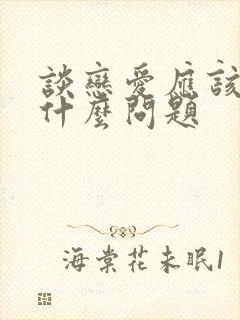 談戀愛應該
什麼問題
海棠花未眠1